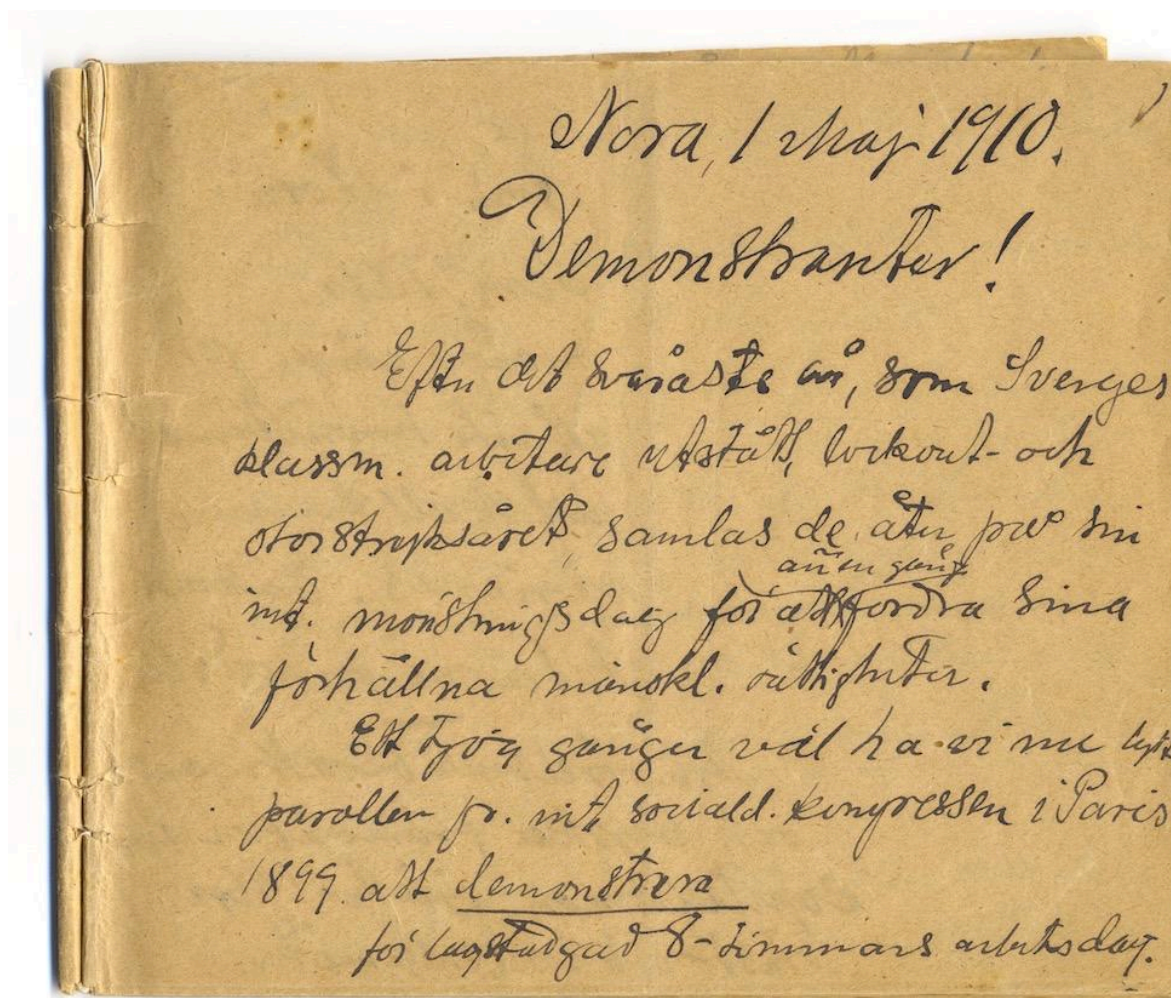 Nora, 1 Maj 1910.
Demonstranter!
Efter det svåraste år, som Sverges
klassm. arbetare utstått, lockout- och
storstrejksåret, samlas de åter på sin
int. mönstringsdag för att ännu en gång fordra sina
förhållna mänskl. rättigheter.
Ett tjog gånger väl ha vi nu lytt
parollen fr. int. sociald. kongressen i Paris
1899 att demonstrera
för lagstadgad 8-timmars arbetsdag.